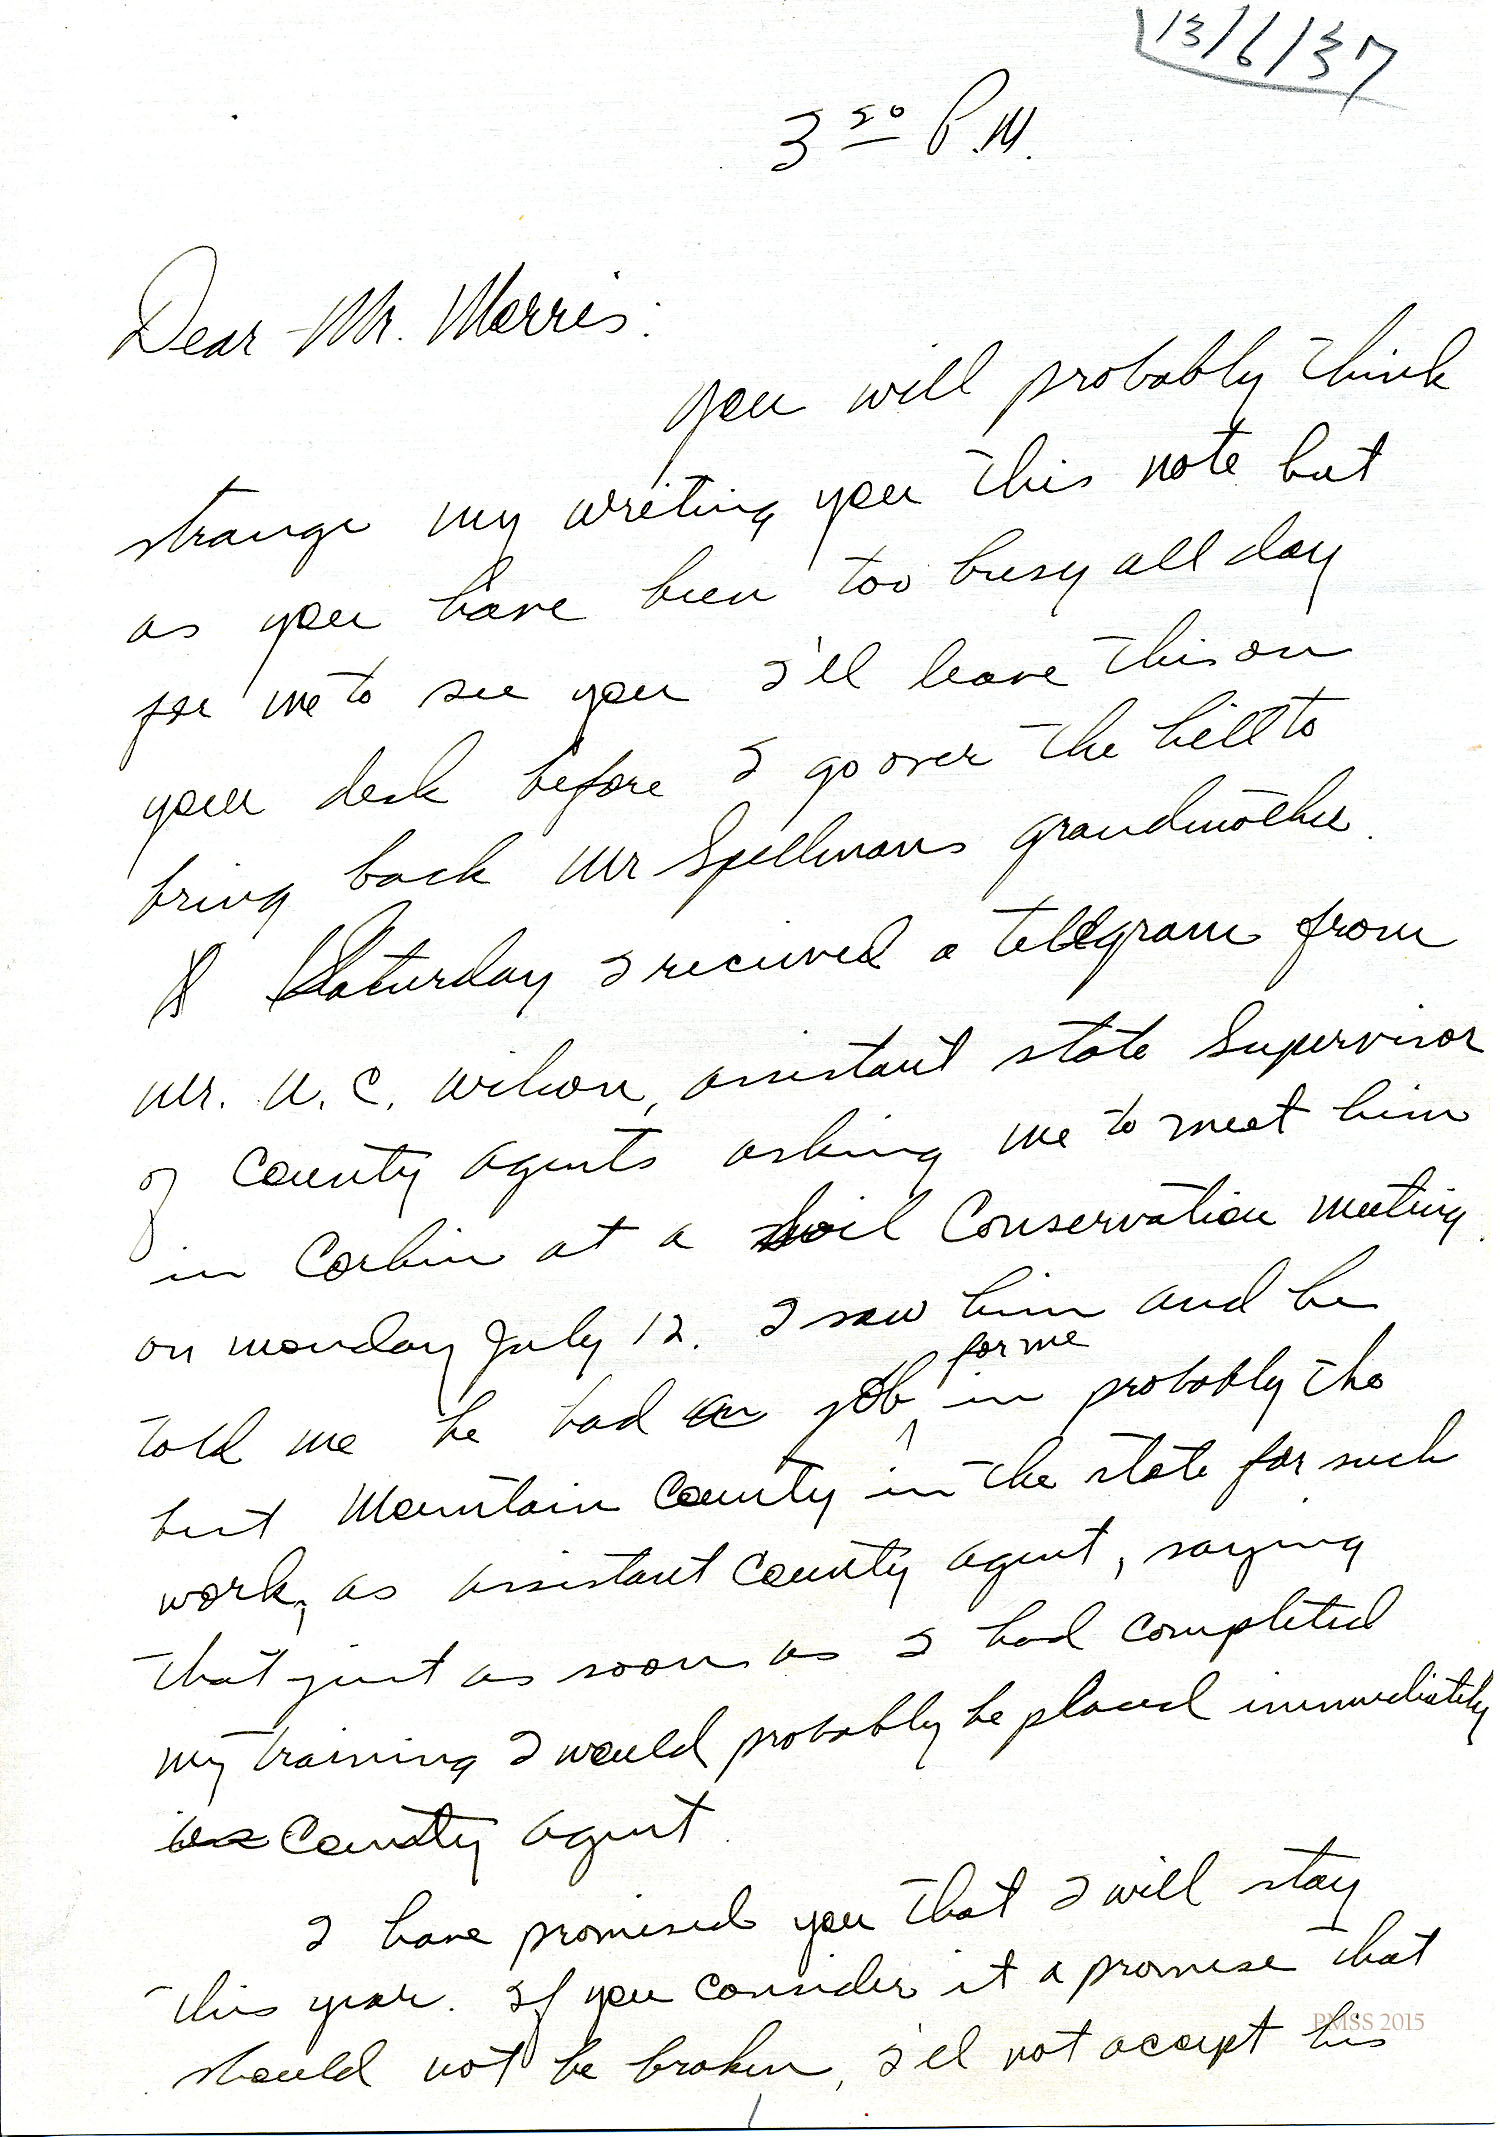 13/6/37
3 30 P.M.
Dear Mr. Morris:
you will probably think
strange my writing you this note but
as you have been too busy all day
for me to see you I'll leave this on
your desk before I go over the hill to
bring back Mr Spellmans grandmother.
Saturday I recieved a telegram from
Mr. N. C. Wilson, assistant state Supervisor
of County Agents asking me to meet him
in Corbin at a Soil Conservation meeting
on monday July 12. I saw him and he
for me
told me he had a job in probably the
best Mountain County in the state for such
work, as assistant County agent, saying
that just as soon as I had completed
my training I would probably be placed immediately
as County agent.
I have promised you that I will stay
this year. If you consider it a promise that
should not be broken, I'll not accept his
PMSS 2015
1